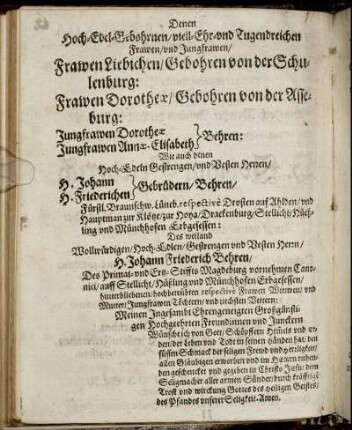 Denen
Hoch-Edel-Gebohrnen/ viell-Ehr-und Tugendreichen
Frawen/ und Jungfrawen/
Frawen Liebichen/ Gebohren von der Schu-
lenburg:
Frawen Dorotheæ/ Gebohren von der Asse-
burg:
Jungfrawen Dorotheæ
Jungfrawen Annæ-Elisabeth } Behren:
Wie auch denen
Hoch-Edeln Gestrengen/ und Vesten Herren/
H. Johann
H. Friederichen } Gebrüdern/ Behren/
Fürstl. Braunschw. Lüneb. respectivè Drosten auff Ahlden/ und
Hauptman zur Klötze/ zur Hoya/ Drackenburg/ Stellicht/ Hüeß-
ling und Münchhofen Erbgesessen:
Des weiland
Wollwürdigen/ Hoch-Edlen/ Gestrengen und Vesten Herrn/
H. Johann Friederich Behren/
Des Primat- und Ertz-Stiffts Magdeburg vornehmen Cano-
nici, auff Stellicht/ Hüßling und Münchhofen Erbgesessen/
hinterbliebenen/ hochbetrübten respectivè Frawen Witwen/ und
Mutter/ Jungfrawen Töchtern/ und nechsten Vettern:
Meinen Ingesambt Ehrengeneigten Großgünsti-
gen Hochgeehrten Freundinnen und Junckern
Wünsche ich von Gott/ Schöpffern Himels und er-
den/ der leben und Todt in seinen händen hat/ den
süssen Schmack der seligen Frewd und herrligkeit/
allen Gläubigen erworben und im Herren ruhen-
den geschencket und gegeben in Christo Jesu/ dem
Seligmacher aller armen Sünder/ durch kräfftige
Trost und wirckung Gottes des heiligen Geistes/
des Pfandes unserer Seligkeit-Amen.